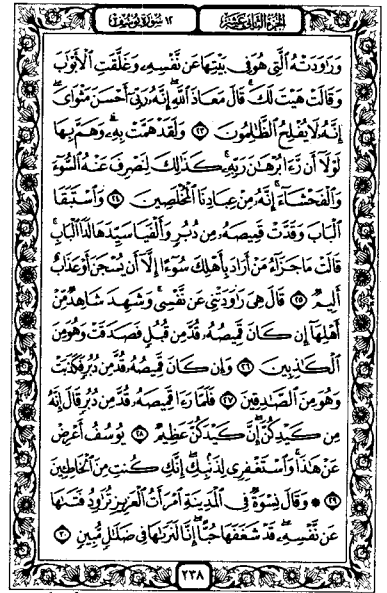 الجزء الثاني عشر ١٢ سورة يوسف
وَرَٰوَدَتْهُ ٱلَّتِى هُوَ فِى بَيْتِهَا عَن نَّفْسِهِۦ وَغَلَّقَتِ ٱلْأَبْوَٰبَ
وَقَالَتْ هَيْتَ لَكَ ۚ قَالَ مَعَاذَ ٱللَّهِ ۖ إِنَّهُۥ رَبِّىٓ أَحْسَنَ مَثْوَاىَ ۖ
إِنَّهُۥ لَا يُفْلِحُ ٱلظَّٰلِمُونَ ٢٣ وَلَقَدْ هَمَّتْ بِهِۦ ۖ وَهَمَّ بِهَا
لَوْلَآ أَن رَّءَا بُرْهَٰنَ رَبِّهِۦ ۚ كَذَٰلِكَ لِنَصْرِفَ عَنْهُ ٱلسُّوٓءَ
وَٱلْفَحْشَآءَ ۚ إِنَّهُۥ مِنْ عِبَادِنَا ٱلْمُخْلَصِينَ ٢٤ وَٱسْتَبَقَا
ٱلْبَابَ وَقَدَّتْ قَمِيصَهُۥ مِن دُبُرٍ وَأَلْفَيَا سَيِّدَهَا لَدَا ٱلْبَابِ ۚ
قَالَتْ مَا جَزَآءُ مَنْ أَرَادَ بِأَهْلِكَ سُوٓءًا إِلَّآ أَن يُسْجَنَ أَوْ عَذَابٌ
أَلِيمٌ ٢٥ قَالَ هِىَ رَٰوَدَتْنِى عَن نَّفْسِى ۚ وَشَهِدَ شَاهِدٌ مِّنْ
أَهْلِهَآ إِن كَانَ قَمِيصُهُۥ قُدَّ مِن قُبُلٍ فَصَدَقَتْ وَهُوَ مِنَ
ٱلْكَٰذِبِينَ ٢٦ وَإِن كَانَ قَمِيصُهُۥ قُدَّ مِن دُبُرٍ فَكَذَبَتْ
وَهُوَ مِنَ ٱلصَّٰدِقِينَ ٢٧ فَلَمَّا رَءَا قَمِيصَهُۥ قُدَّ مِن دُبُرٍ قَالَ إِنَّهُۥ
مِن كَيْدِكُنَّ ۖ إِنَّ كَيْدَكُنَّ عَظِيمٌ ٢٨ يُوسُفُ أَعْرِضْ
عَنْ هَٰذَا ۚ وَٱسْتَغْفِرِى لِذَنۢبِكِ ۖ إِنَّكِ كُنتِ مِنَ ٱلْخَاطِـِٔينَ
٢٩ ۞ وَقَالَ نِسْوَةٌ فِى ٱلْمَدِينَةِ ٱمْرَأَتُ ٱلْعَزِيزِ تُرَٰوِدُ فَتَىٰهَا
عَن نَّفْسِهِۦ ۖ قَدْ شَغَفَهَا حُبًّا ۖ إِنَّا لَنَرَىٰهَا فِى ضَلَٰلٍ مُّبِينٍ ٣٠
٢٣٨